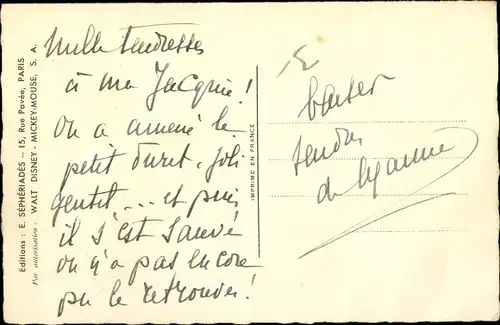 Mille tendresses
à ma Jacquie !
On a amené le
petit Duret. Joli
gentil .... et puis
il s'est sauvé
on n'a pas encore
pu le retrouver !
baiser
tendre
de
Editions : E. SÉPHÉRIADÈS — 15, Rue Pavée, PARIS
Par autorisation : WALT DISNEY - MICKEY-MOUSE, S. A.
IMPRIMÉ EN FRANCE